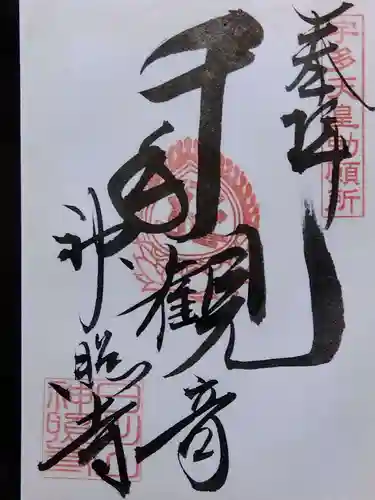 奉拝
宇多天皇勅願所
千手観音
神照寺